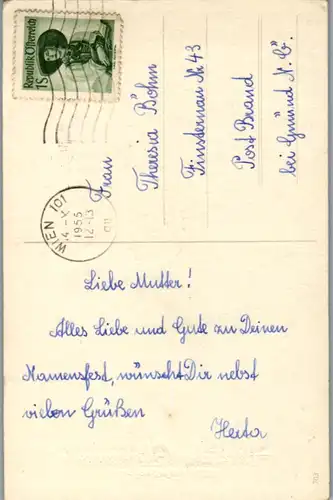 Republik Österreich
1S
WIEN 101
4.-X
1955
12-13
Frau
Theresia Böhm
Finsternau Nr 43
Post Brand
bei Gmünd N.Ö.
Liebe Mutter!
Alles Liebe und Gute zu Deinen
Namensfest, wünscht Dir nebst
vielen Grüßen
Herta